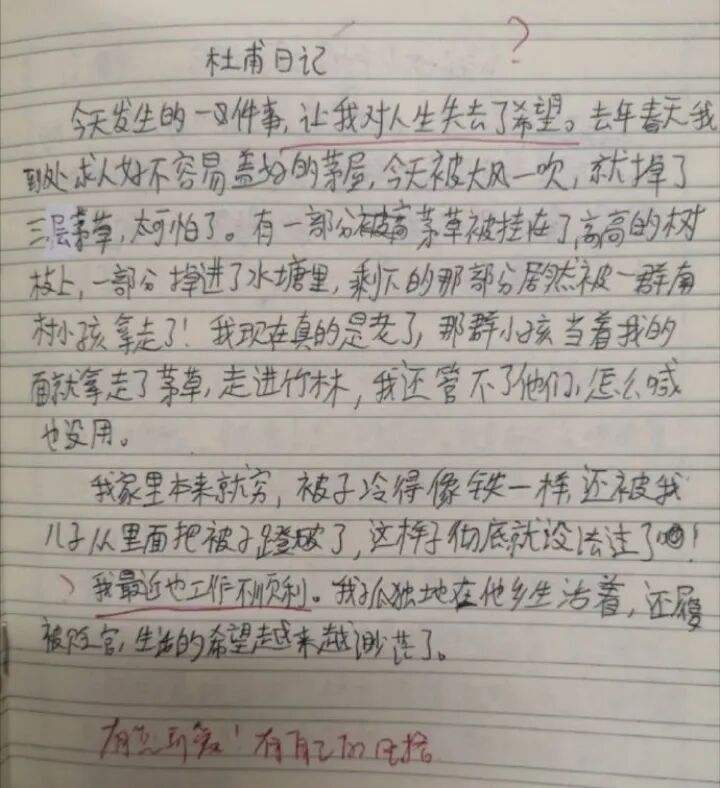 ?
杜甫日记
今天发生的一件事,让我对人生失去了希望。去年春天我
到处求人好不容易盖好的茅屋,今天被大风一吹,就掉了
三层茅草,太可怕了。有一部分被茅草被挂在了高高的树
枝上,一部分掉进了水塘里,剩下的那部分居然被一群南
村小孩拿走了!我现在真的是老了,那群小孩当着我的
面就拿走了茅草,走进竹林,我还管不了他们,怎么喊
也没用。
我家里本来就穷,被子冷得像铁一样,还被我
儿子从里面把被子蹬破了,这样子彻底就没法过了!
我最近也工作不顺利。我孤独地在他乡生活着,还屡
被贬官,生活的希望越来越渺茫了。
有自己的